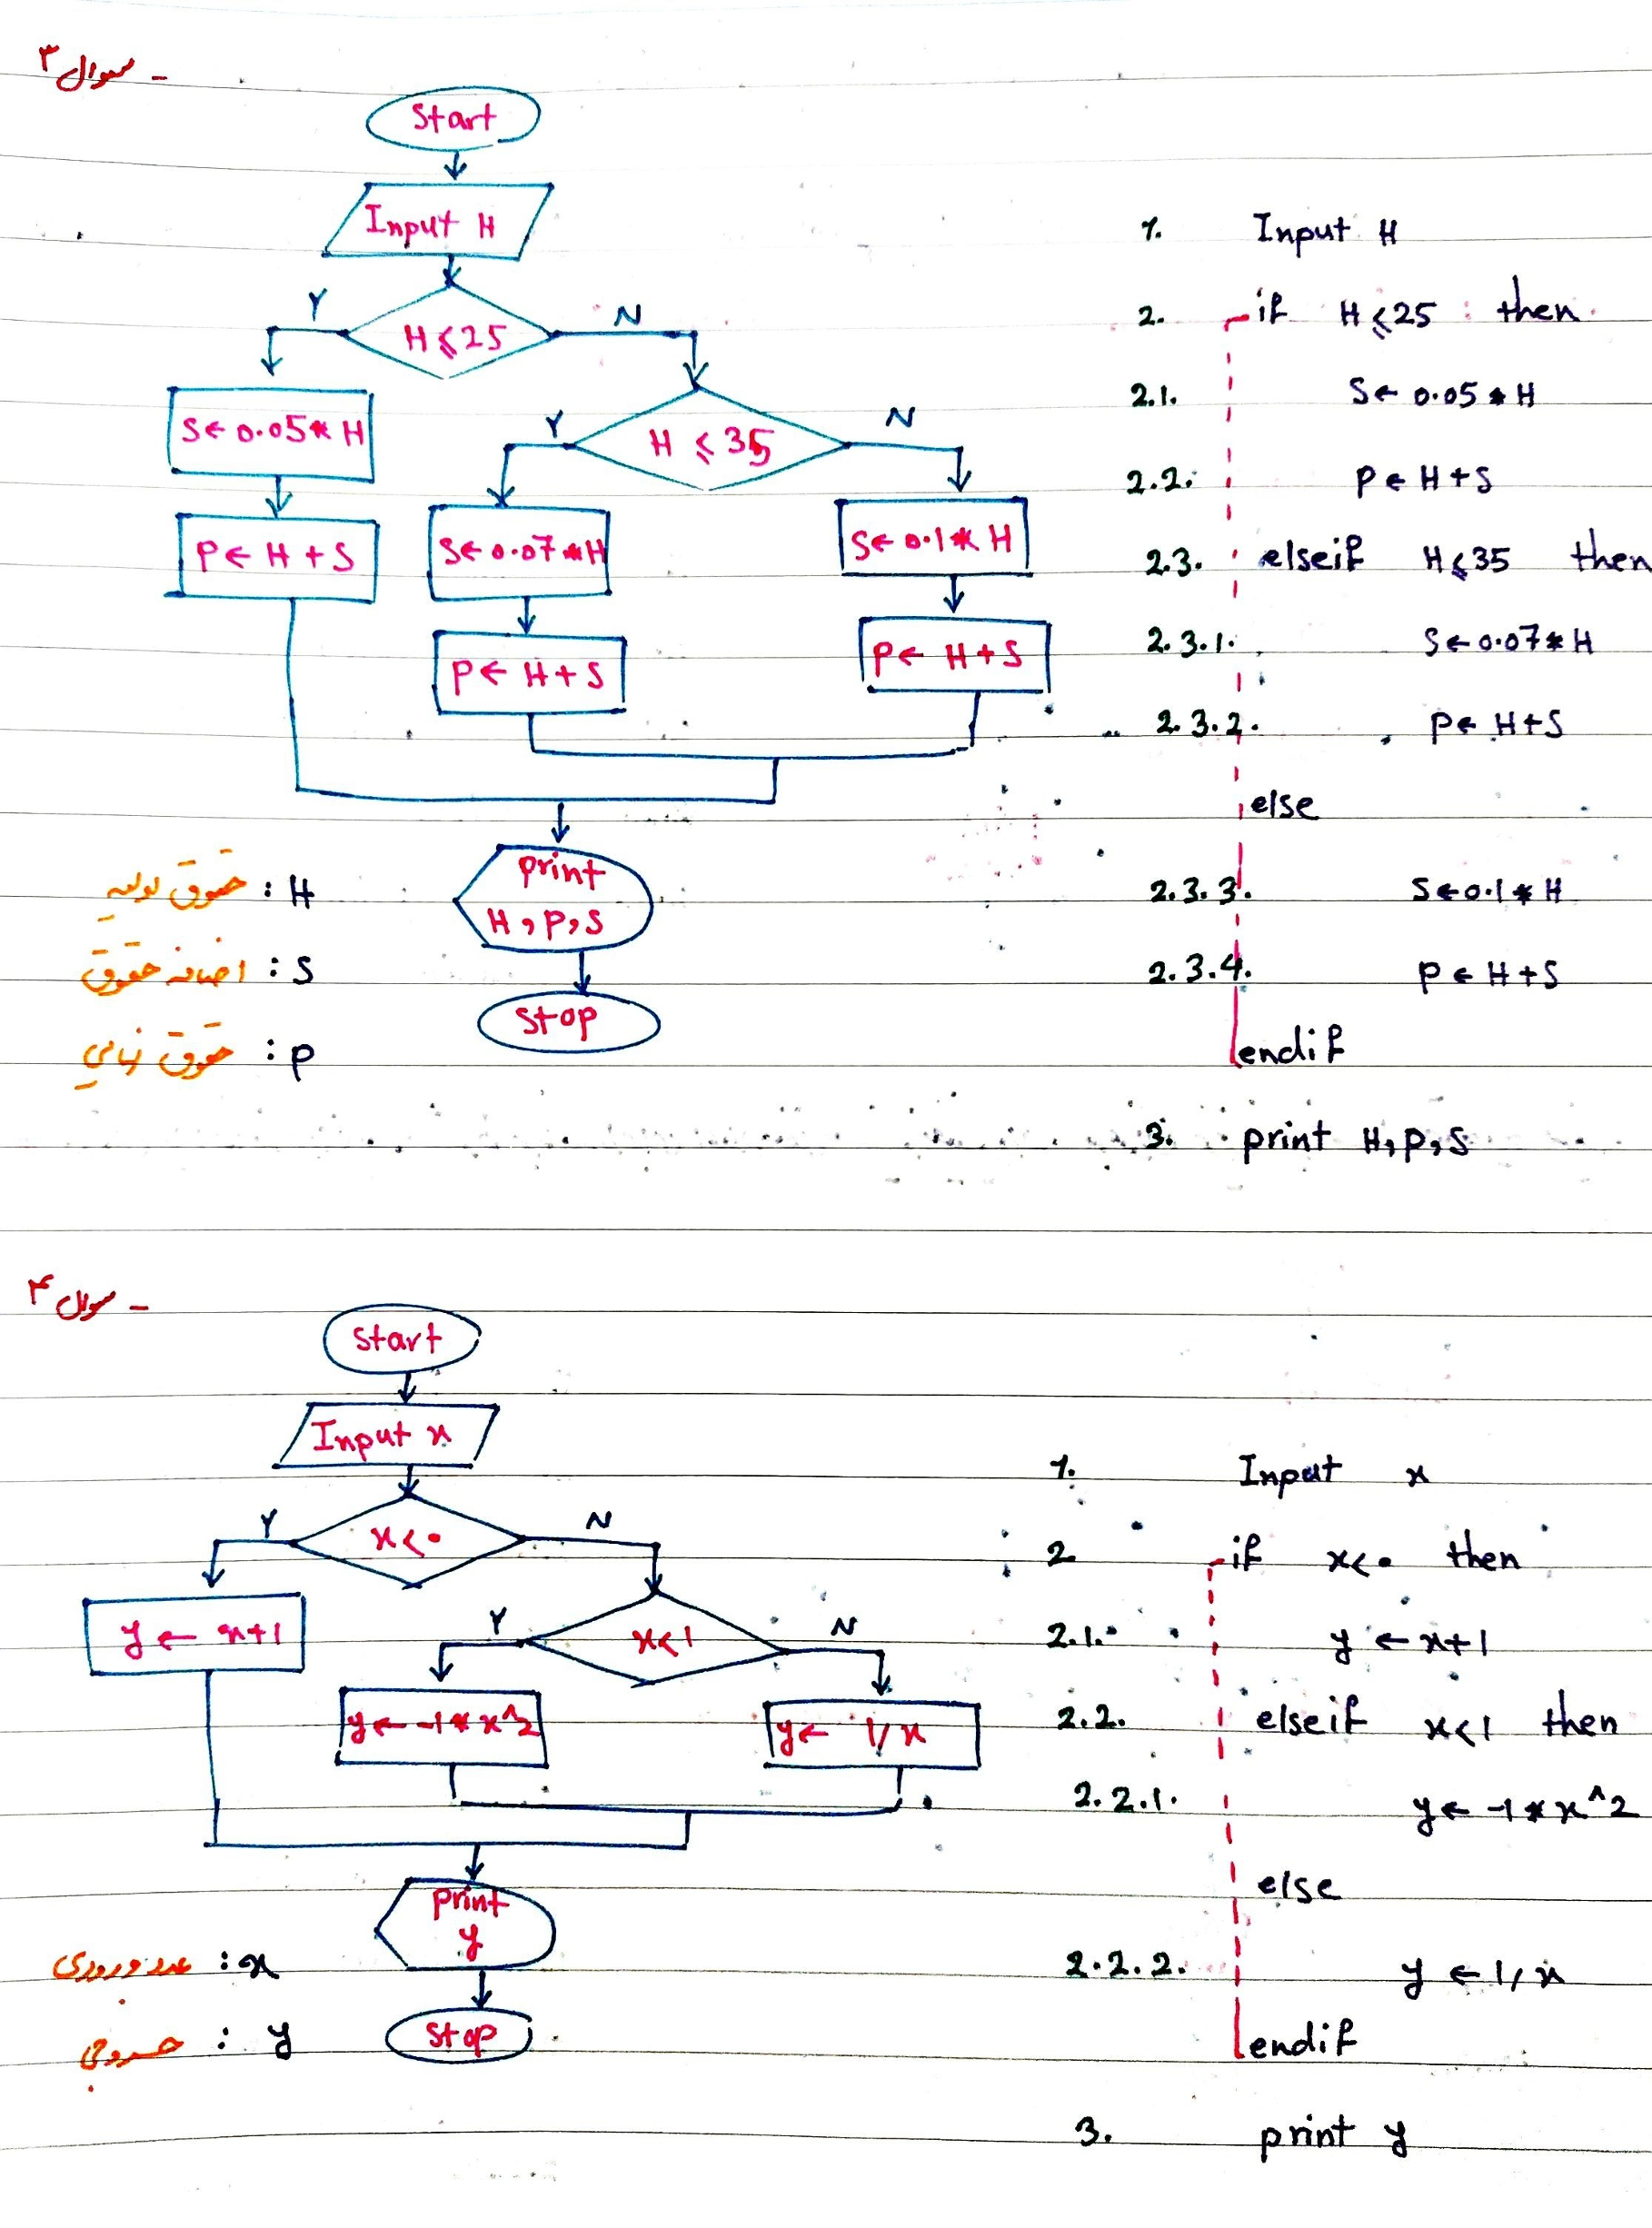 سوال ۳ -
Start
Input H
H ⩽ 25
Y
N
S ← 0.05 * H
P ← H + S
H ⩽ 35
Y
N
S ← 0.07 * H
P ← H + S
S ← 0.1 * H
P ← H + S
print
H , P , S
Stop
حقوق اولیه : H
اضافه حقوق : S
حقوق نهایی : P
1. Input H
2. if H ⩽ 25 then
2.1. S ← 0.05 * H
2.2. P ← H + S
2.3. elseif H ⩽ 35 then
2.3.1. S ← 0.07 * H
2.3.2. P ← H + S
else
2.3.3. S ← 0.1 * H
2.3.4. P ← H + S
endif
3. print H , P , S
سوال ۴ -
Start
Input x
x < ۰
Y
N
y ← x+1
x < 1
Y
N
y ← -1 * x^2
y ← 1/x
print
y
Stop
عدد ورودی : x
خروجی : y
1. Input x
2 if x < ۰ then
2.1. y ← x+1
2.2. elseif x < 1 then
2.2.1. y ← -1 * x^2
else
2.2.2. y ← 1/x
endif
3. print y